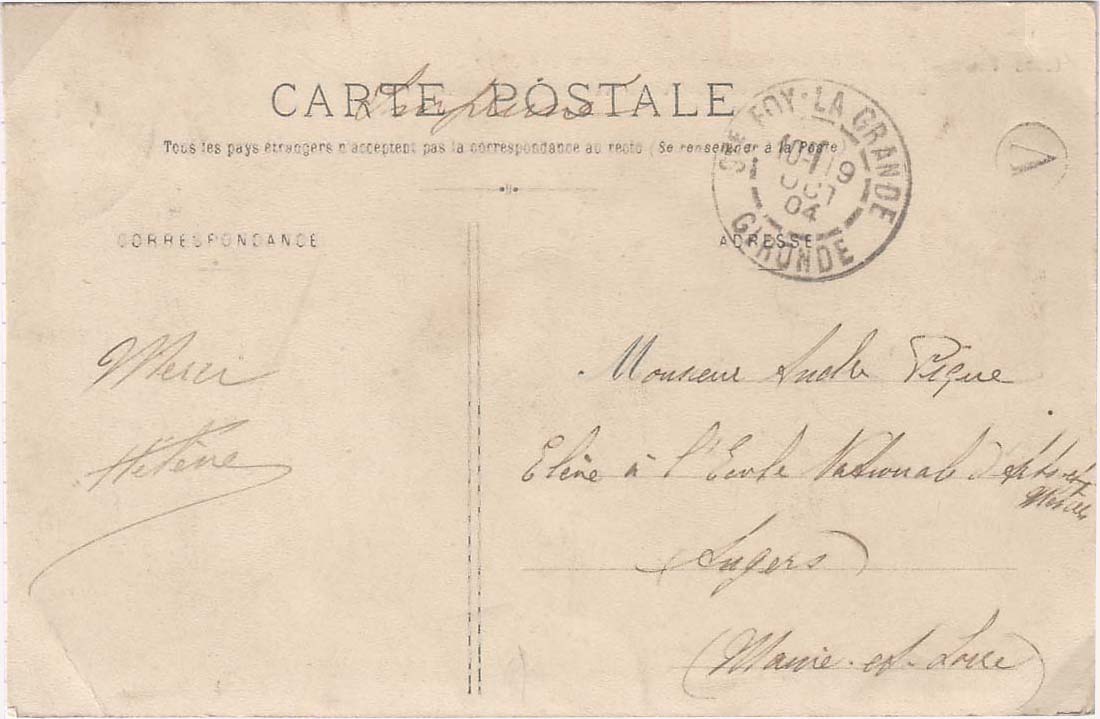 CARTE POSTALE
Tous les pays étrangers n'acceptent pas la correspondance au recto (Se renseigner à la Poste)
STE FOY-LA GRANDE
10-19
OCT
04
GIRONDE
A
CORRESPONDANCE
ADRESSE
Merci
Hélène
Monsieur André Pique
Elève à l'Ecole National d'Arts-et
Metiers
Angers
(Maine-et-Loire)